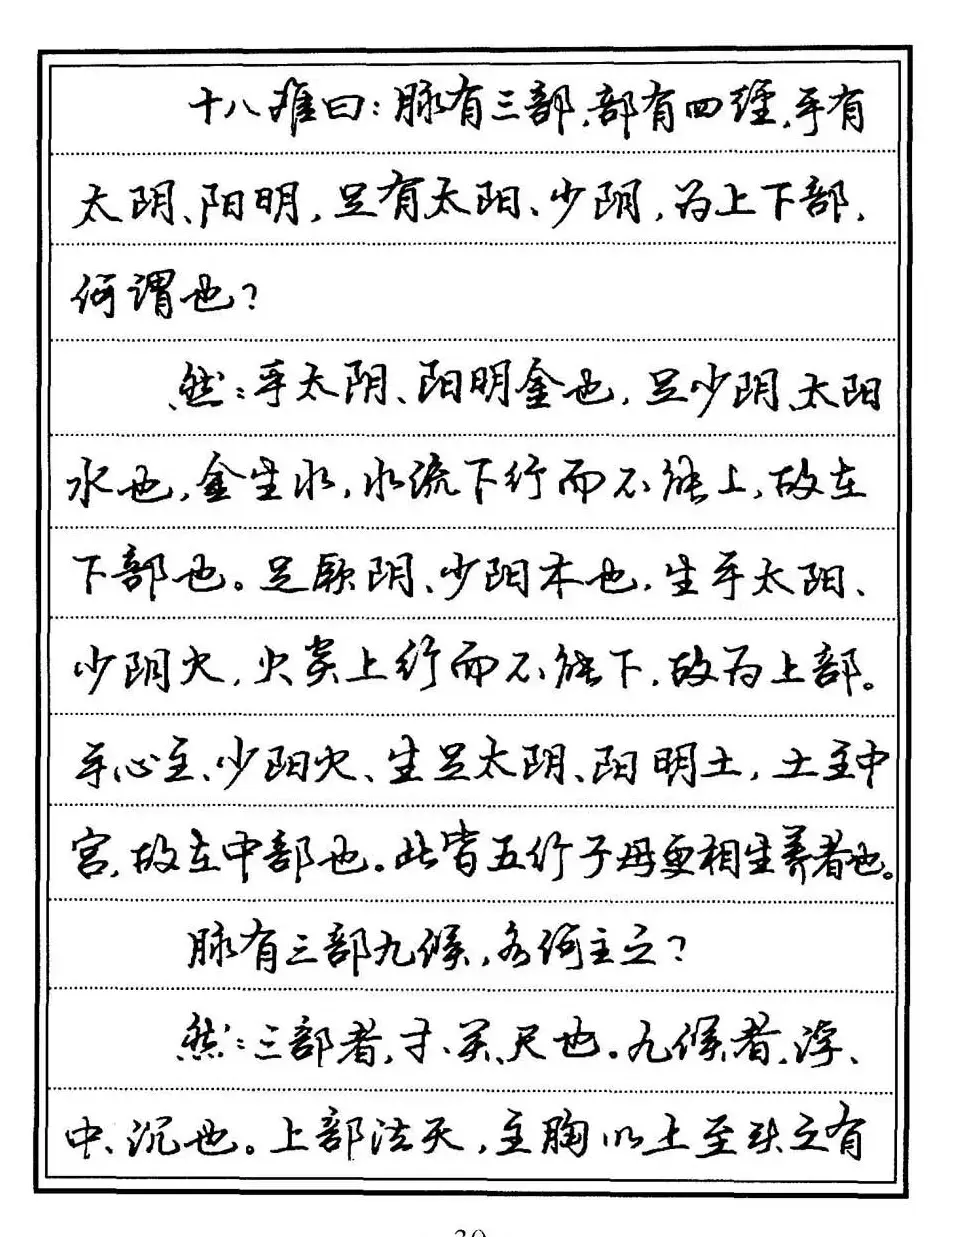 十八难曰：脉有三部，部有四经，手有
太阴、阳明，足有太阳、少阴，为上下部，
何谓也？
然：手太阴、阳明金也，足少阴、太阳
水也，金生水，水流下行而不能上，故在
下部也。足厥阴、少阳木也，生手太阳、
少阴火，火炎上行而不能下，故为上部。
手心主、少阳火、生足太阴、阳明土，土主中
宫，故在中部也。此皆五行子母更相生养者也。
脉有三部九候，各何主之？
然：三部者，寸、关、尺也。九候者，浮、
中、沉也。上部法天，主胸以上至头之有